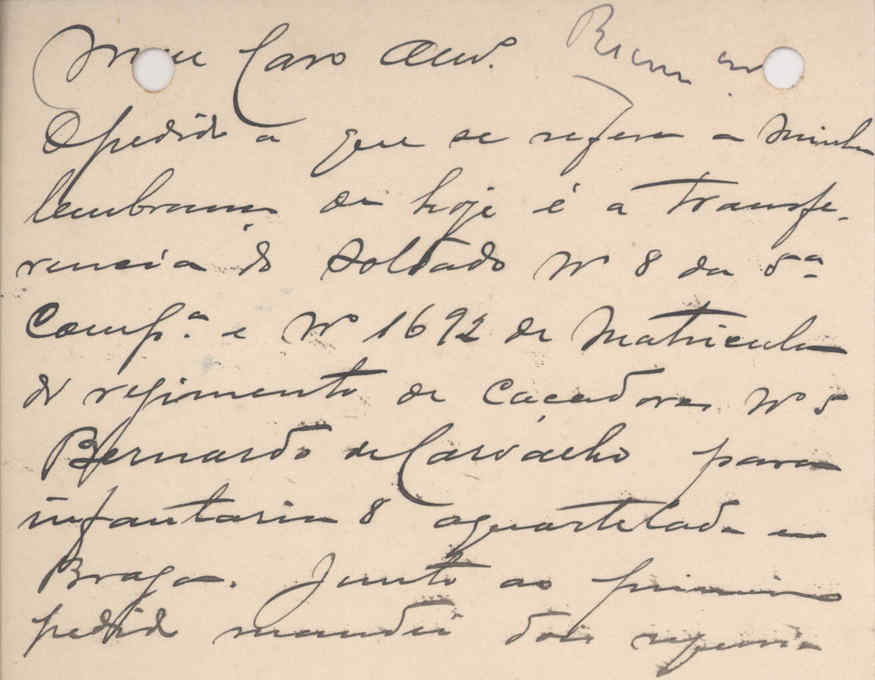 Meu Caro Am.º
O pedido a que se refere a minha
lembrança de hoje é a transfe-
rencia do soldado Nº 8 da 5ª
Comp.ª e Nº 1692 de matricula
do regimento de Caçadores Nº 5
Bernardo de Carvalho para
infantaria 8 aquartelada em
Braga. Junto ao primeiro
pedido mandei dois